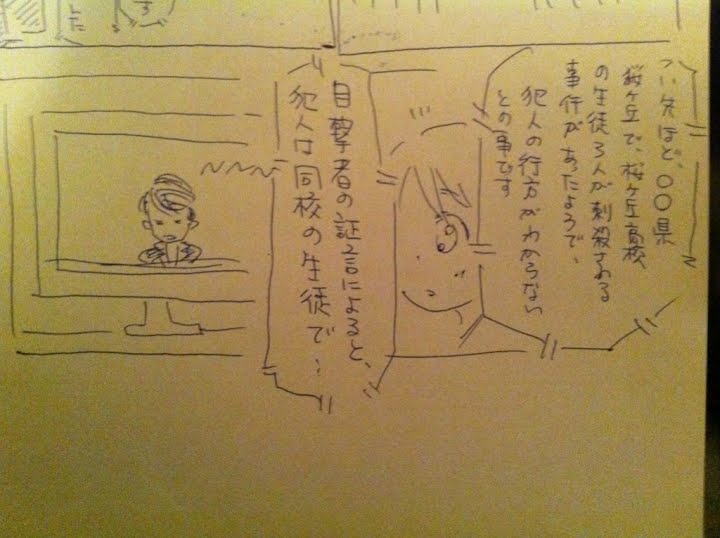 つい先ほど、〇〇県
桜ヶ丘で、桜ヶ丘高校
の生徒3人が刺殺される
事件があったようで、
犯人の行方がわからない
との事です
目撃者の証言によると、
犯人は同校の生徒で、